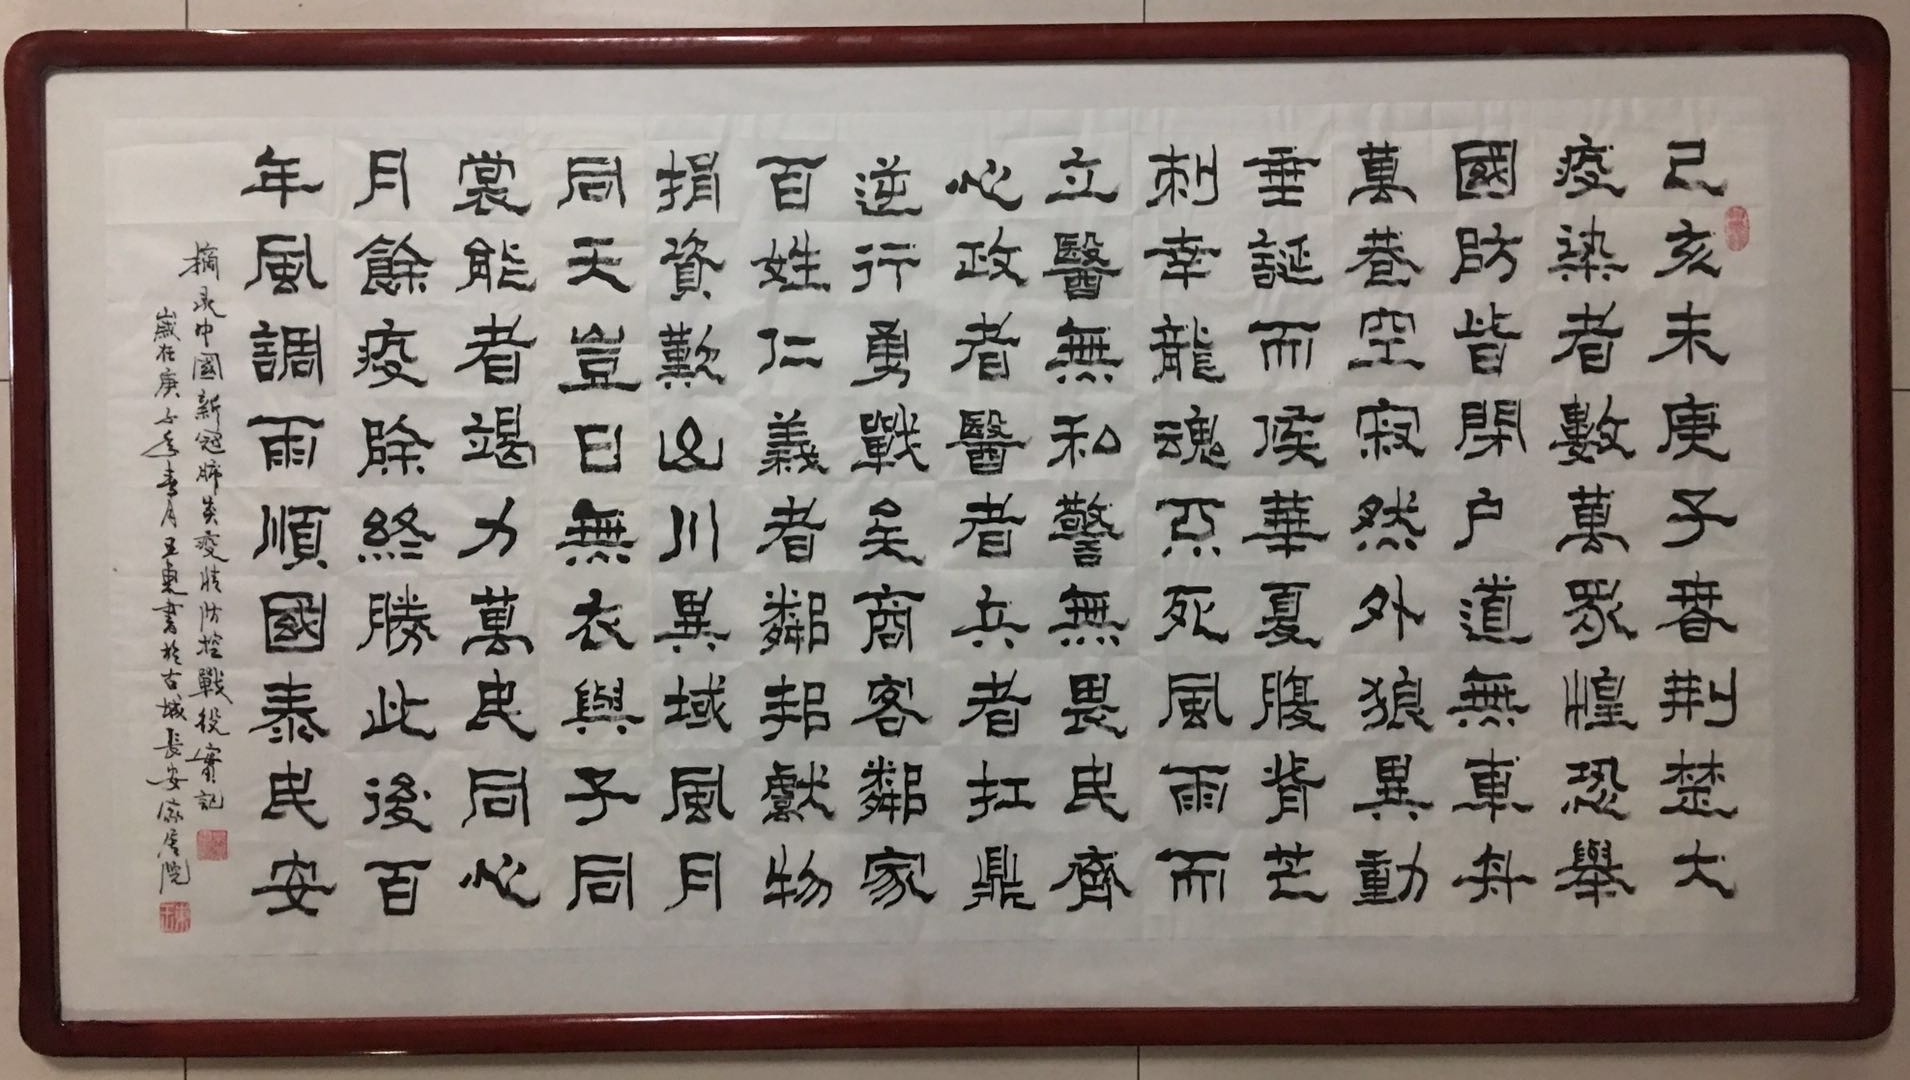 己亥末庚子春荆楚大
疫染者數萬眾惶恐舉
國防皆閉户道無車舟
萬巷空寂然外狼異動
垂誕而候華夏腹背芒
刺幸龍魂不死風雨而
立醫無私警無畏民齊
心政者醫者兵者扛鼎
逆行勇戰矣商客鄰家
百姓仁義者鄰邦獻物
捐資歎山川異域風月
同天豈曰無衣與子同
裳能者竭力萬民同心
月餘疫除終勝此後百
年風調雨順國泰民安
摘录中國新冠肺炎疫情防控戰役實記
歲在庚子年春月王東書於古城長安